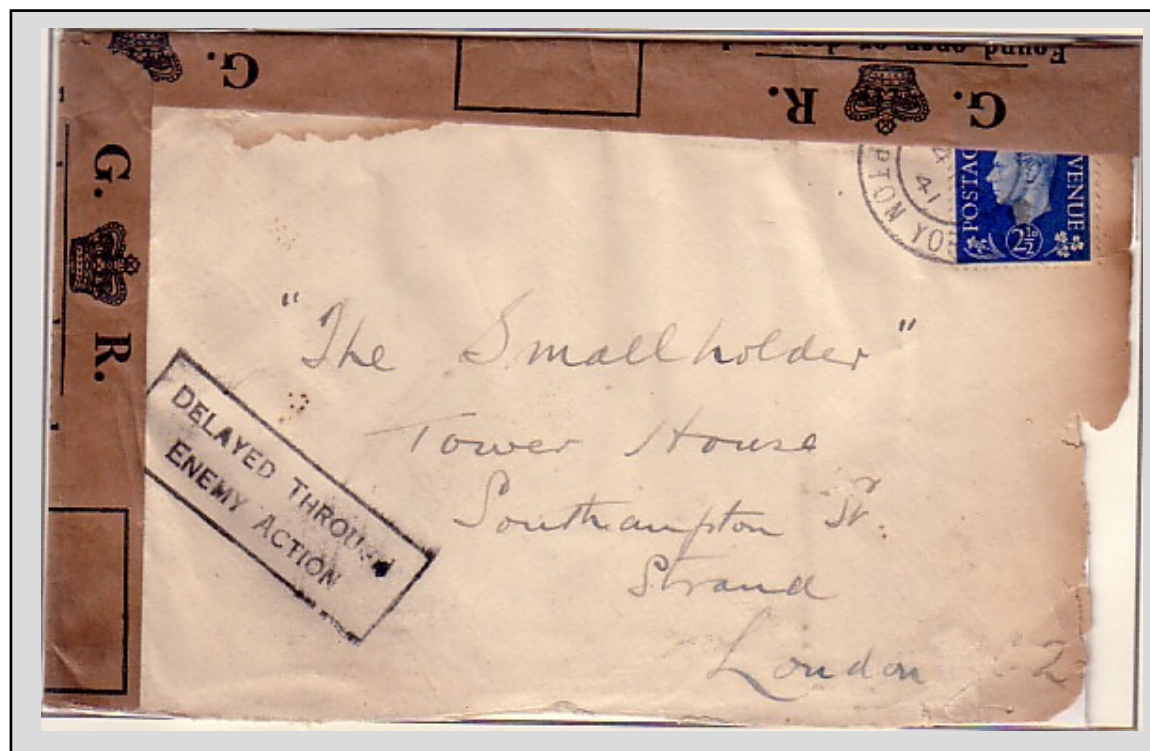 Found open or
G.
R.
G.
G.
R.
4
41
TON YO
POSTAG
VENUE
2½D
"The Smallholder"
Tower House
Southampton St.
Strand
London C2
DELAYED THROUGH
ENEMY ACTION